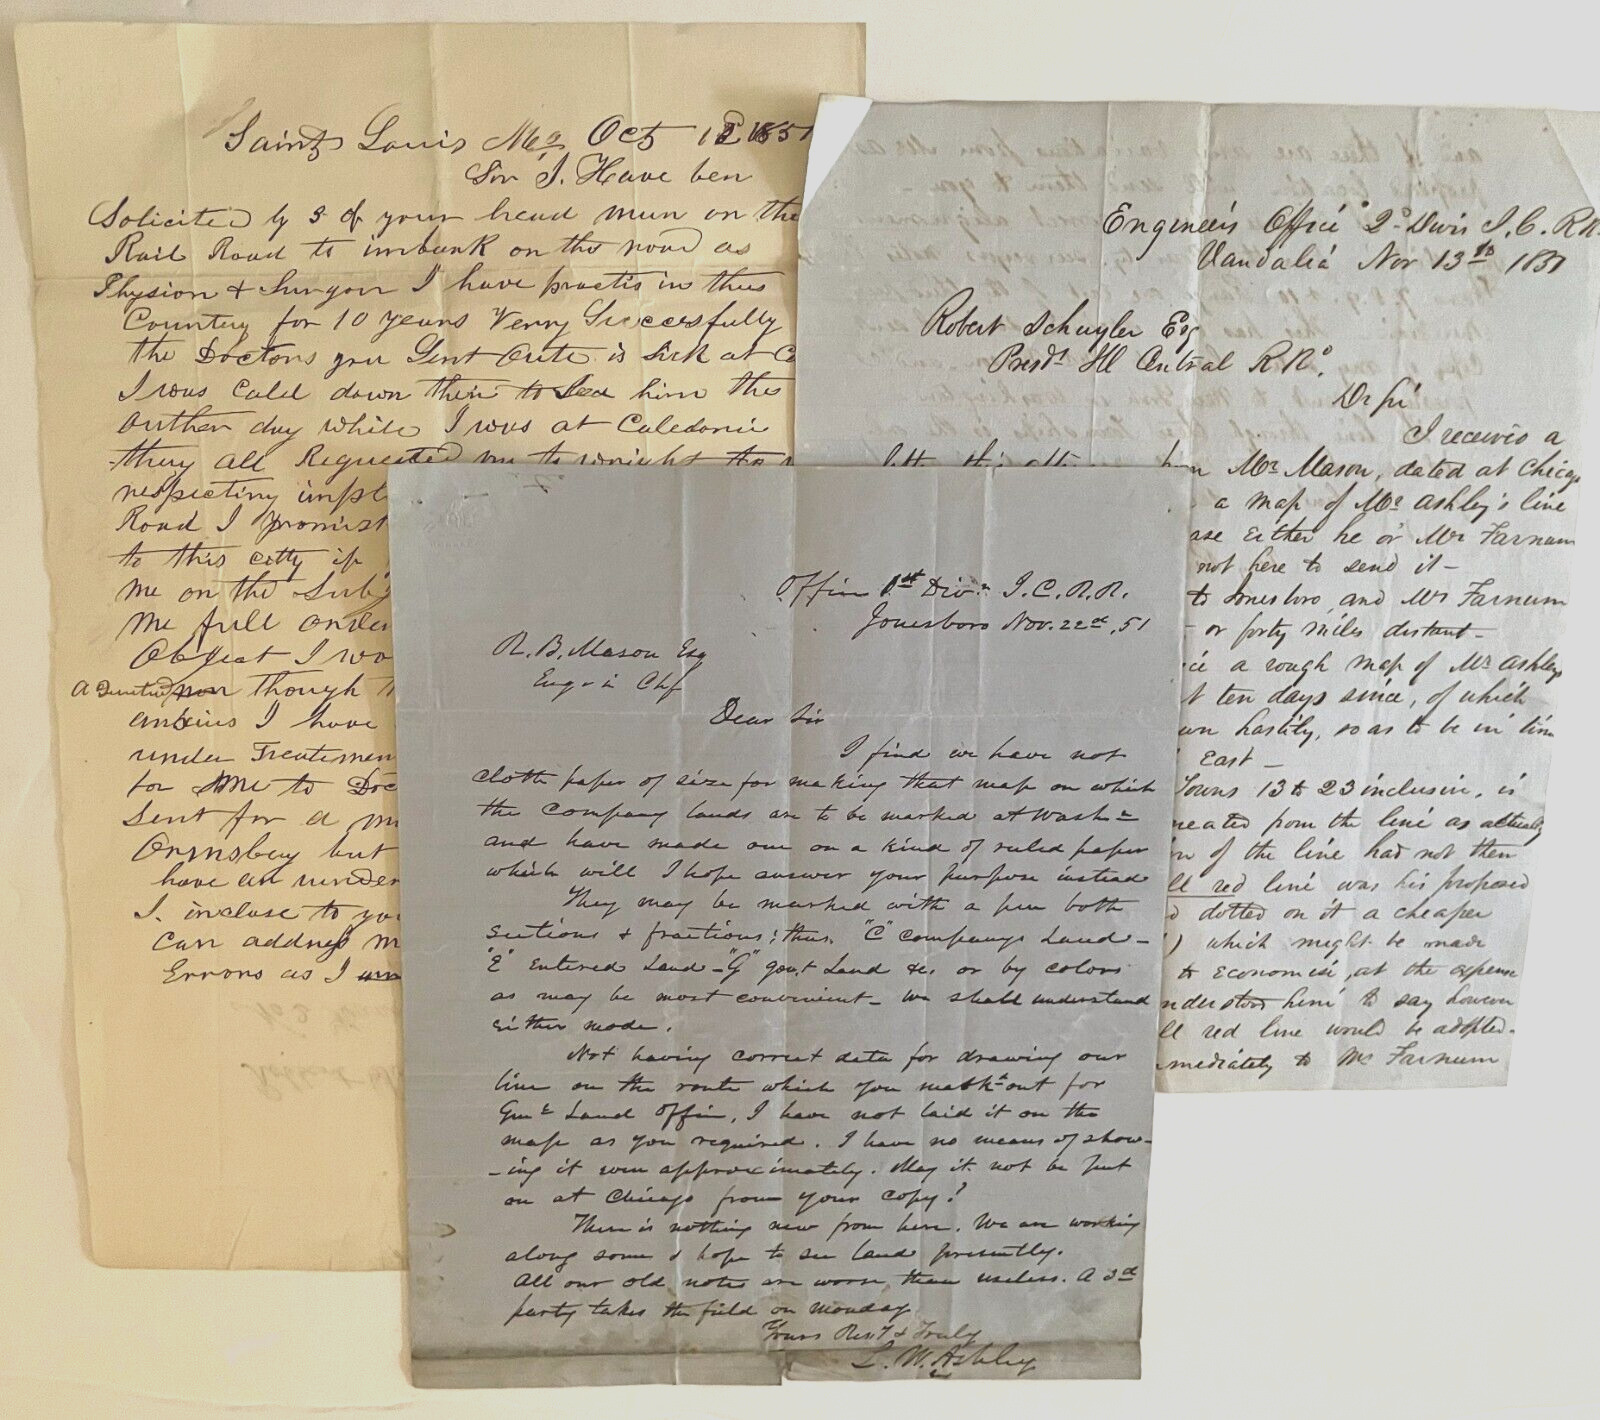 Saint Louis Mo Oct 12 1851
Sir I. Have ben
Solicited by 3 of your head mun on the
Rail Road to imbark on the road as
Physion & Surgon I have practis in thus
Country for 10 years Verry Succesfully
the Doctors you Sent Oute is Sick at
I was Cald down their to See him the
Outher day while I was at Caledonia
they all Requested me to wright to
respecting
Road I promist
to this citty if
me on the Subj
me full order
Object I wo
though
anxius I have
under Treatmen
for me to Doc
Sent for a m
Ormsbey but
have an under
I. inclose to you
can address m
Errors as I
Engineer's Office 2d Divis I. C. R R.
Vandalia Nov 13th 1851
Robert Schuyler Esq
Presdt Ill Central R Rd.
Dr Sir
I received a
Mr Mason, dated at Chicago
a map of Mr Ashley's line
Either he or Mr Farnum
not here to send it—
to Jonesboro, and Mr Farnum
or forty miles distant—
a rough map of Mr Ashleys
ten days since, of which
hastily, so as to be in time
East—
Towns 13 to 23 inclusive, is
from the line as actually
of the line had not then
red line was his proposed
dotted on it a cheaper
) which might be made
to Economise, at the expense
understood him to say however
red line would be adopted.
mmediately to Mr Farnum
Office 1st Divn. I. C. R. R.
Jonesboro Nov. 22d, 51
R. B. Mason Esq
Engr in Chf
Dear Sir
I find we have not
cloth paper of size for making that map on which
the company lands are to be marked at Washn
and have made one on a kind of ruled paper
which will I hope answer your purpose instead
They may be marked with a pen both
sections & fractions; thus. "C" companys Land—
"E" Entered Land—"G" gov.t Land &c. or by colors
as may be most convenient— We shall understand
either mode.
Not having correct data for drawing our
line on the route which you out for
Land Office, I have not laid it on the
map as you required. I have no means of show-
-ing it even approximately. May it not be put
on at Chicago from your copy?
There is nothing new from here. We are working
along some & hope to see land presently.
All our old notes are worse than useless. A 3d
party takes the field on Monday.
Yours Resy & Truly
L. W. Ashley